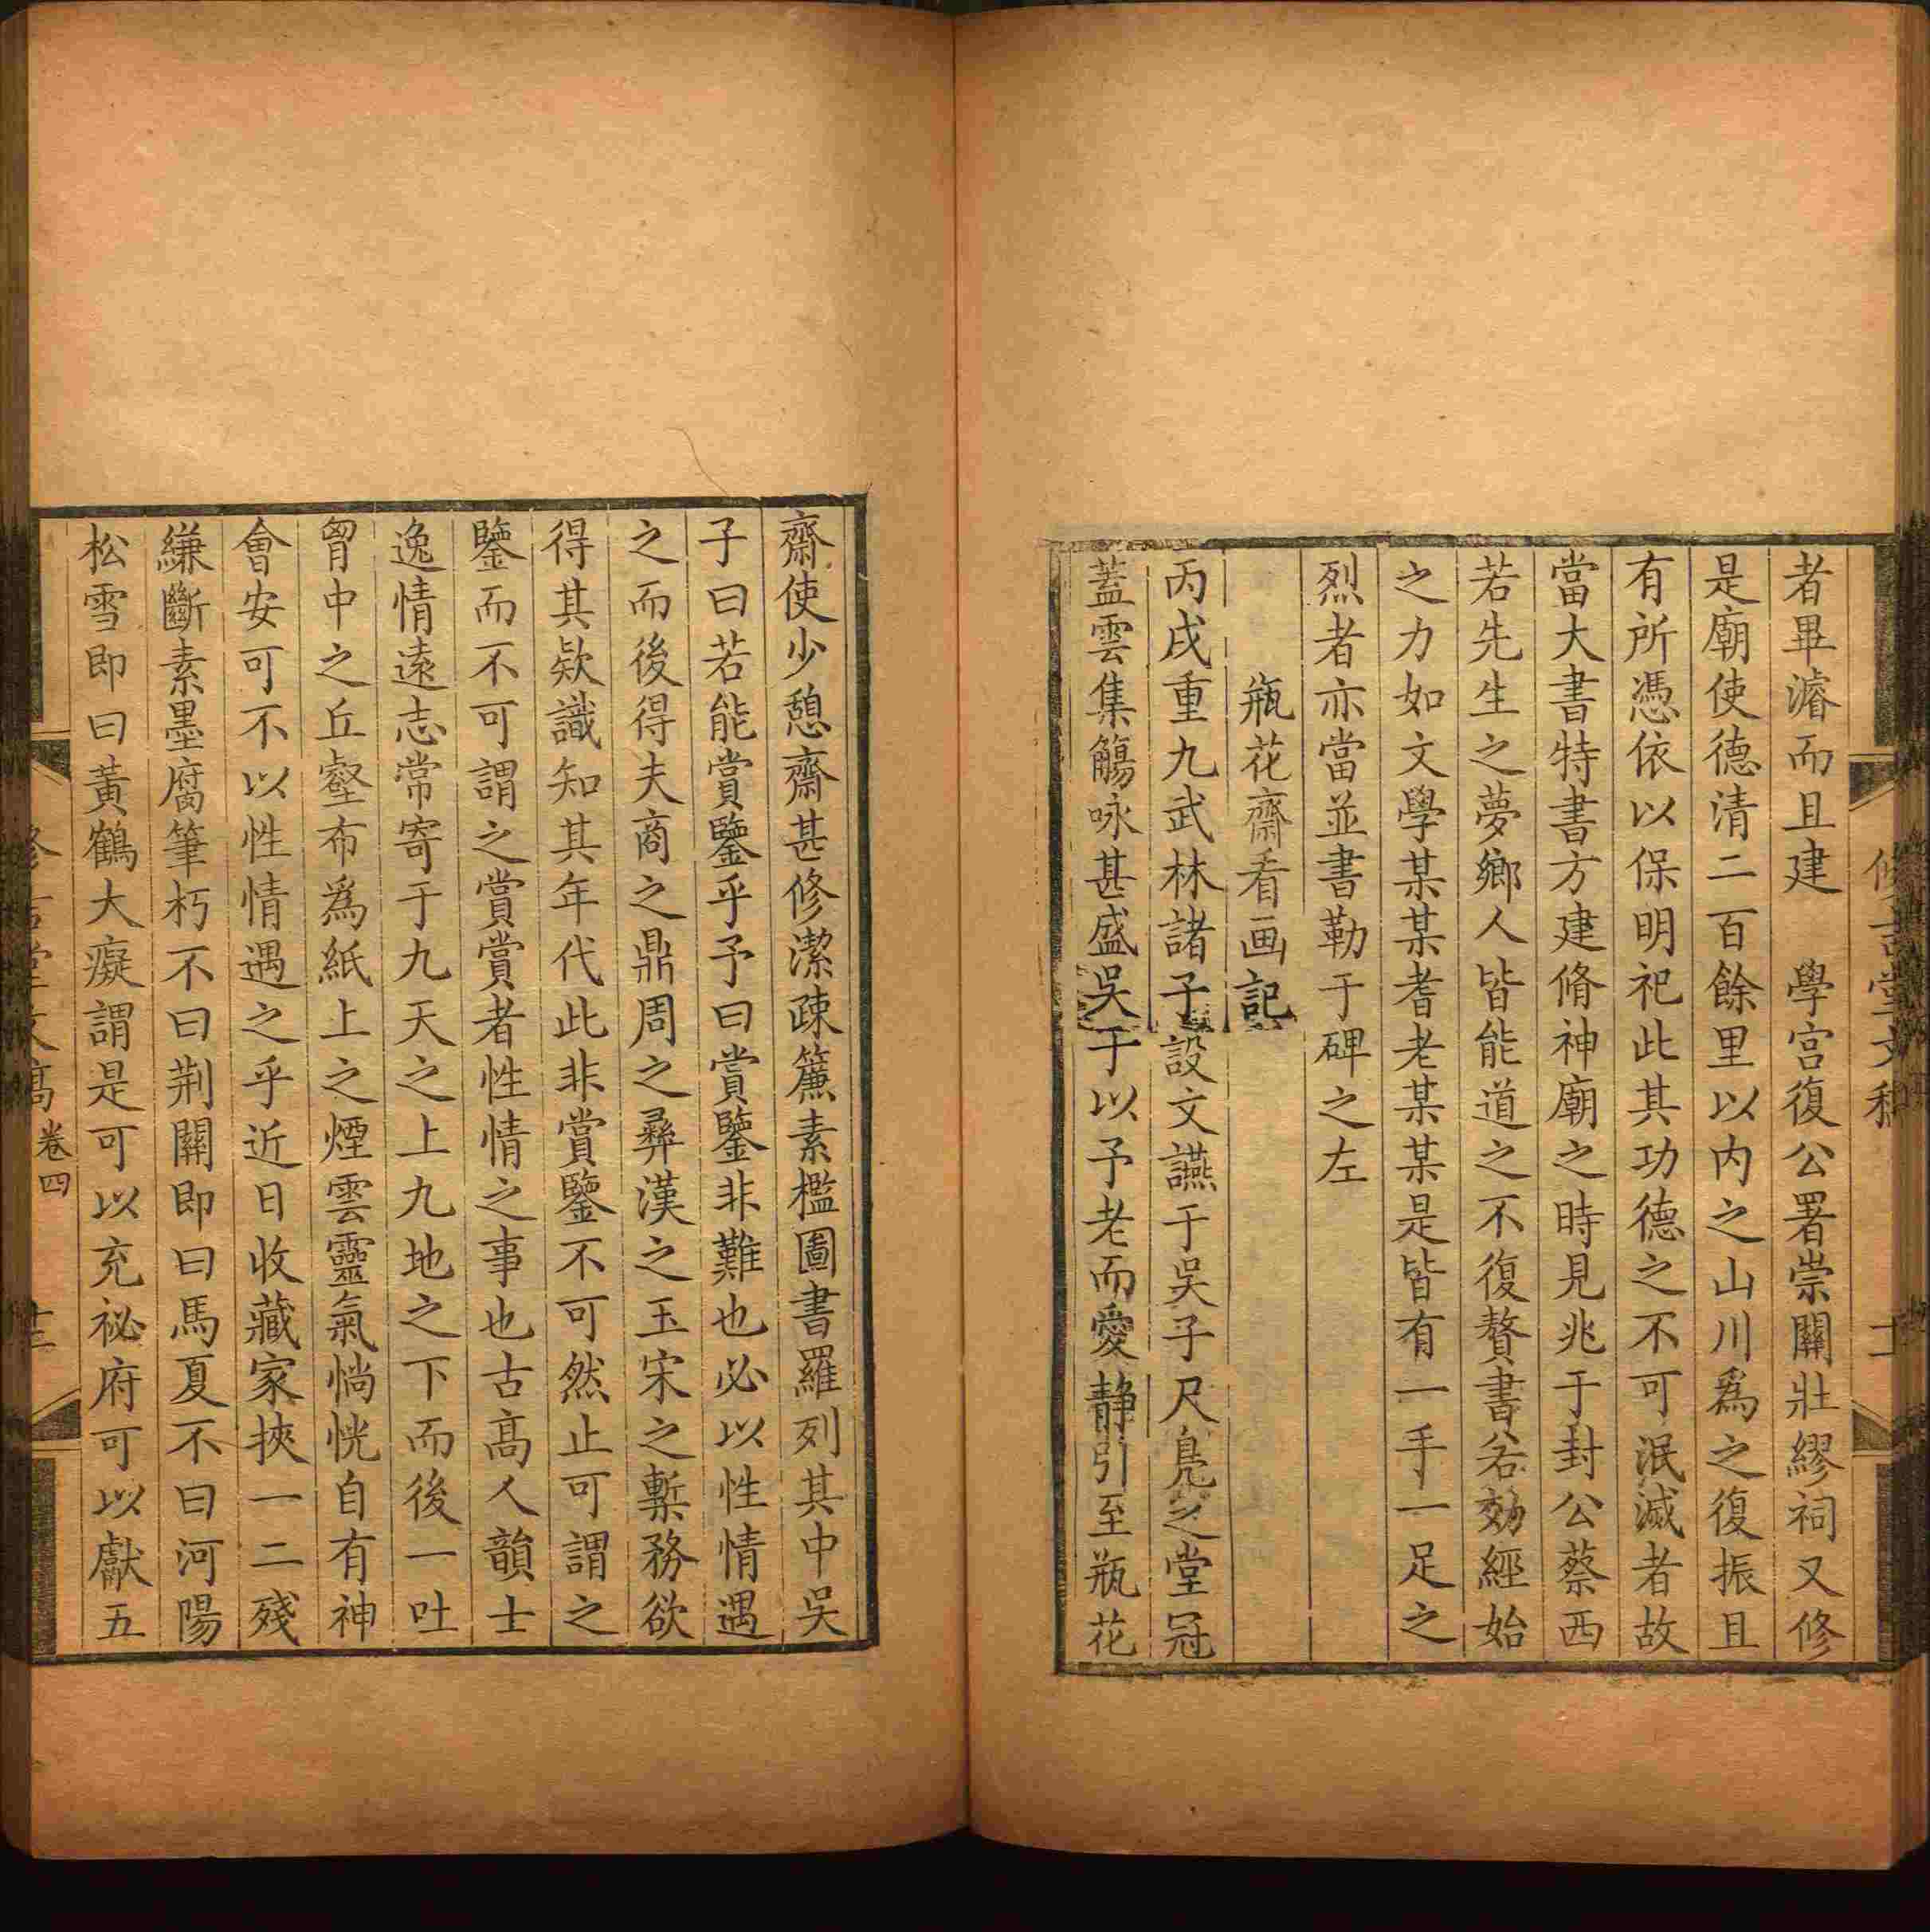 者畢濬而且建　學宮復公署崇關壯繆祠又修
是廟使德清二百餘里以内之山川爲之復振且
有所憑依以保明祀此其功德之不可泯滅者故
當大書特書方建脩神廟之時見兆于封公蔡西
若先生之夢鄉人皆能道之不復贅書若効經始
之力如文學某某耆老某某是皆有一手一足之
烈者亦當並書勒于碑之左
瓶花齋看画記
丙戌重九武林諸子設文讌于吳子尺鳧之堂冠
蓋雲集觴咏甚盛吳子以予老而愛静引至瓶花
齋使少憩齋甚修潔疎簾素檻圖書羅列其中吳
子曰若能賞鑒乎予曰賞鑒非難也必以性情遇
之而後得夫商之鼎周之彝漢之玉宋之槧務欲
得其欵識知其年代此非賞鑒不可然止可謂之
鑒而不可謂之賞賞者性情之事也古高人韻士
逸情遠志常寄于九天之上九地之下而後一吐
胷中之丘壑布爲紙上之煙雲靈氣惝恍自有神
會安可不以性情遇之乎近日收藏家挾一二殘
縑斷素墨腐筆朽不曰荆關即曰馬夏不曰河陽
松雪即曰黃鶴大癡謂是可以充祕府可以獻五
卷四